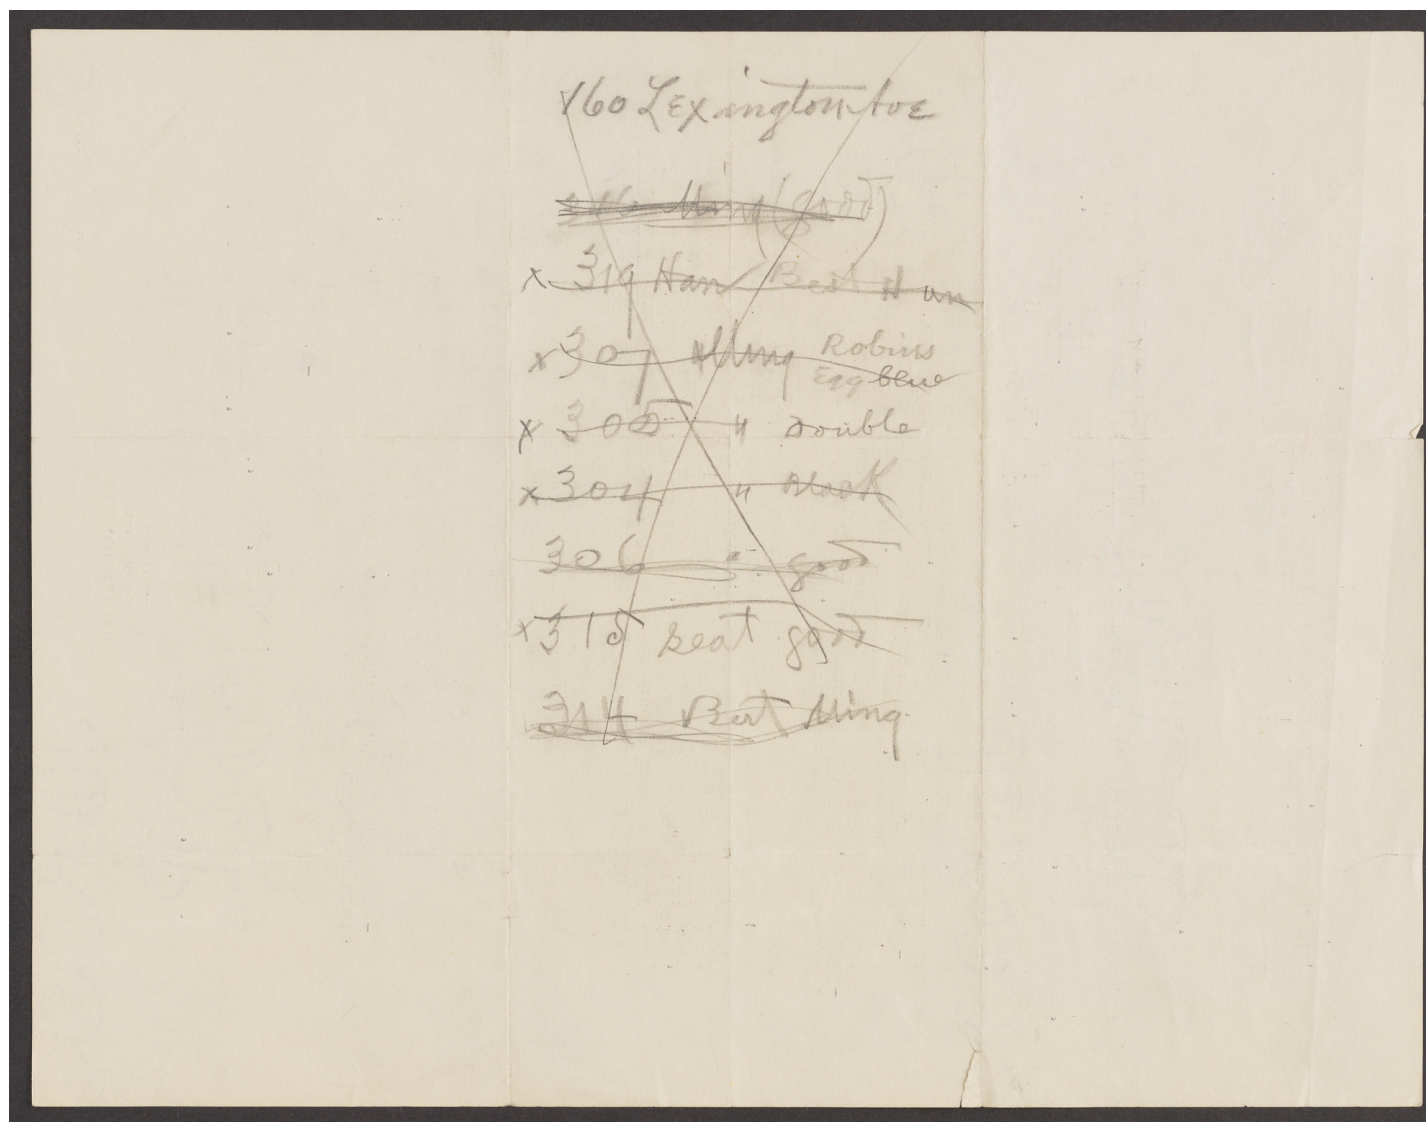 160 Lexington Ave
316 Ming (good)
x 319 Han (Best Han
x 307 Ming Robins
Egg blue
x 305 " Double
x 304 " Black
306 " good
x 315 seat good
314 Best Ming